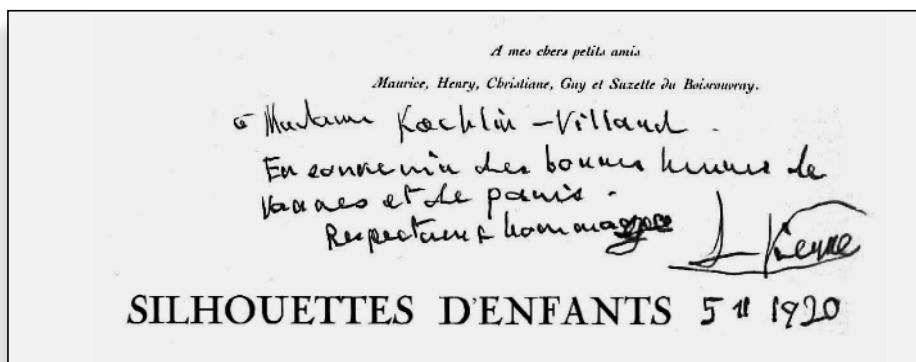 A mes chers petits amis
Maurice, Henry, Christiane, Guy et Suzette du Boisrouvray.
à Madame Koechlin-Villaud.
En souvenir des bonnes heures de
Vannes et de paris.
Respectueux hommages
SILHOUETTES D'ENFANTS 5 11 1920